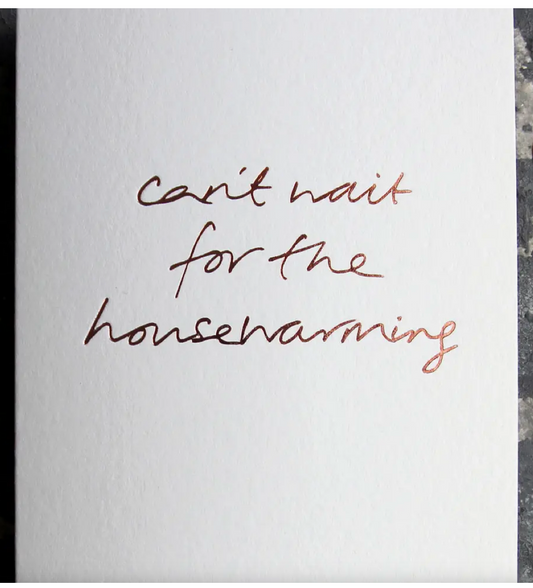 can't wait
for the
housewarming